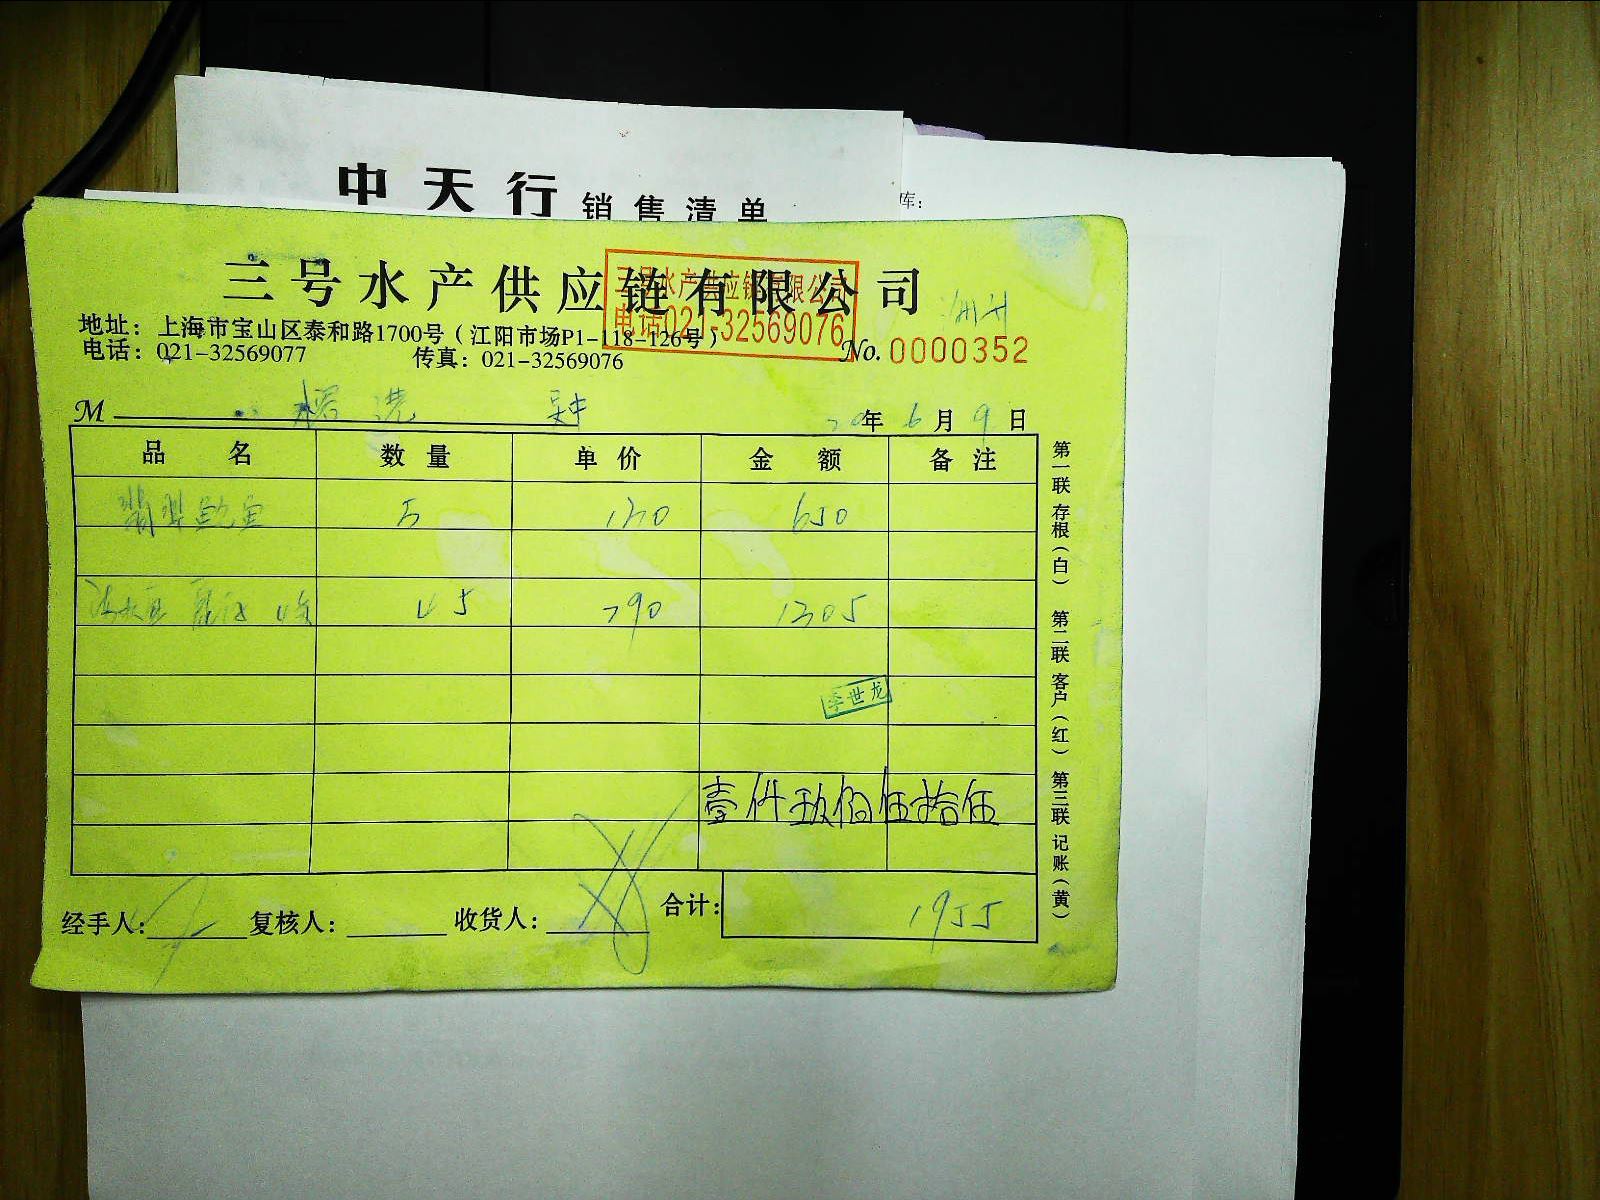 中天行 销售清单
库:
三号水产供应链有限公司
三号水产供应链有限公司
电话021-32569076
地址: 上海市宝山区泰和路1700号(江阳市场P1-118-126号)
电话: 021-32569077 传真: 021-32569076
No. 0000352
M
20年 6月 9日
品名 数量 单价 金额 备注
翡翠鲍鱼 5 130 650
4.5 290 1305
李世龙
壹仟玖佰伍拾伍
经手人: 复核人: 收货人: 合计: 1955
第一联 存根(白)
第二联 客户(红)
第三联 记账(黄)